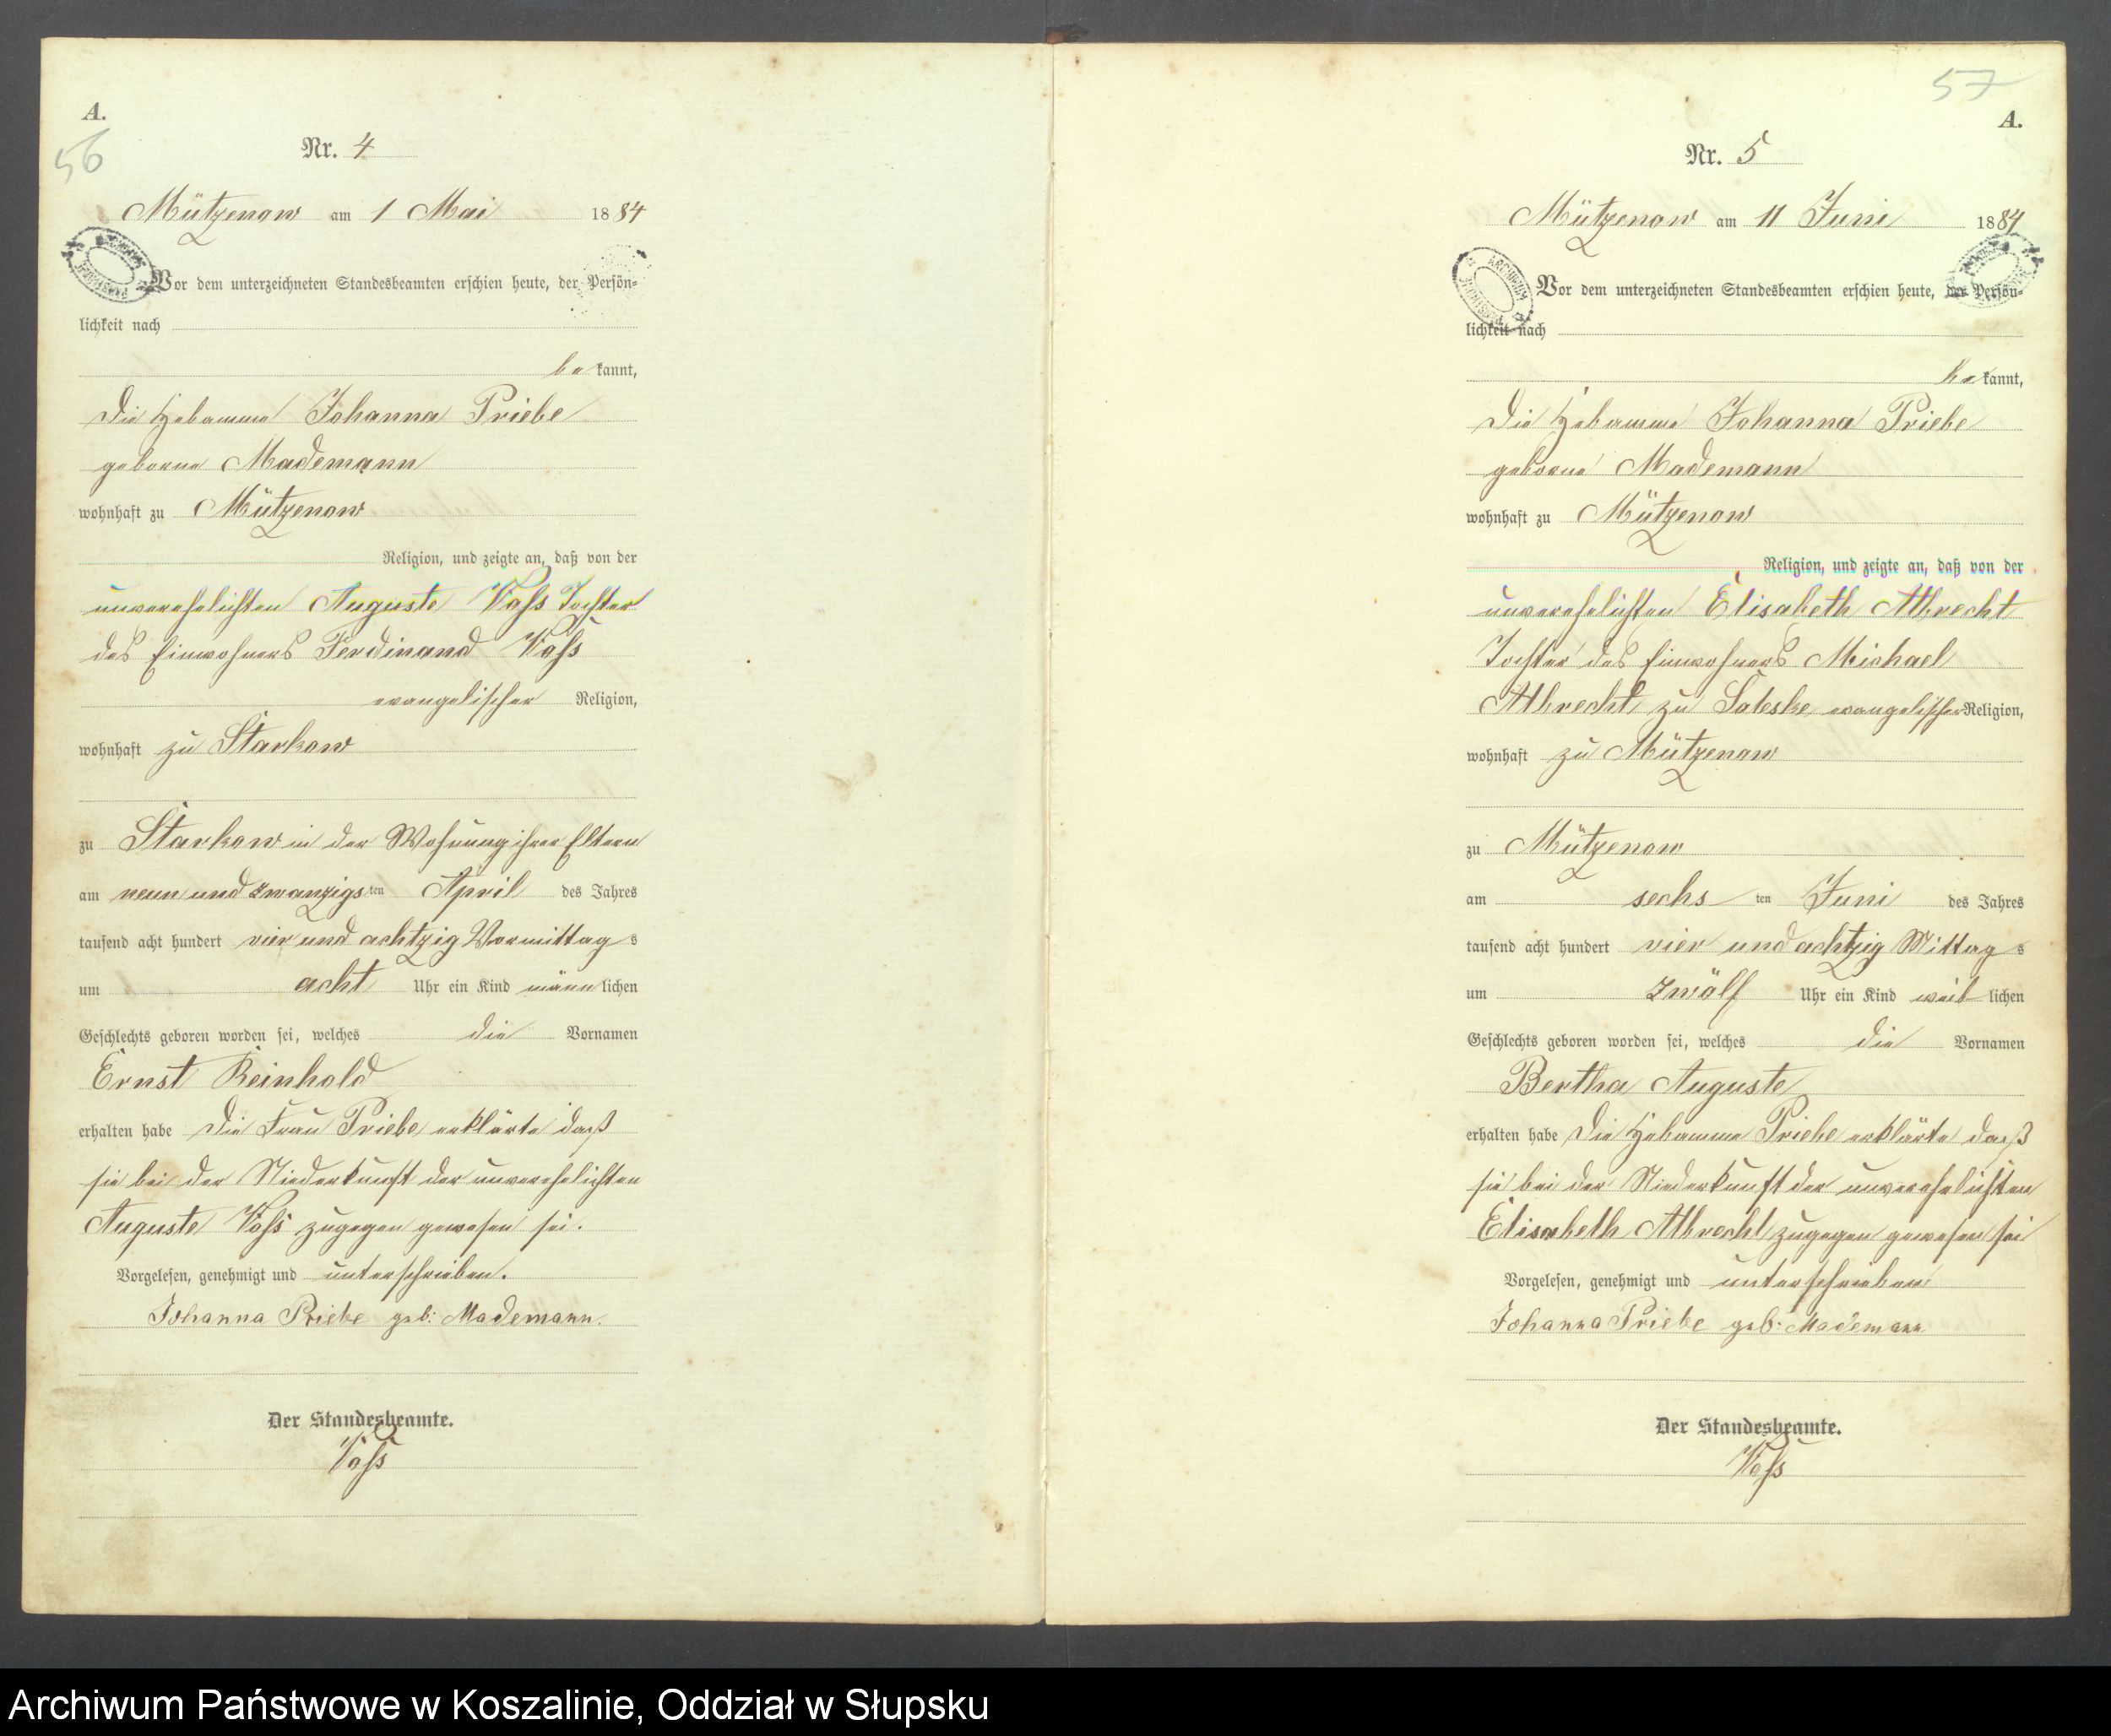 A.
56
Nr. 4
Mützenow am 1 Mai 1884
Vor dem unterzeichneten Standesbeamten erschien heute, der Persön-
lichkeit nach
be kannt,
die Hebamme Johanna Priebe
geborne Mademann
wohnhaft zu Mützenow
Religion, und zeigte an, daß von der
unverehelichten Auguste Voss Tochter
des Einwohners Ferdinand Voss
evangelischer Religion,
wohnhaft zu Starkow
zu Starkow in der Wohnung ihrer Eltern
am neun und zwanzigs ten April des Jahres
tausend acht hundert vier und achtzig Vormittag s
um acht Uhr ein Kind männ lichen
Geschlechts geboren worden sei, welches die Vornamen
Ernst Reinhold
erhalten habe Die Frau Priebe erklärte daß
sie bei der Niederkunft der unverehelichten
Auguste Voss zugegen gewesen sei.
Vorgelesen, genehmigt und unterschrieben.
Johanna Priebe geb: Mademann.
Der Standesbeamte.
Voss
57
A.
Nr. 5
Mützenow am 11 Juni 1884
ARCHIWUM
Vor dem unterzeichneten Standesbeamten erschien heute, der Persön-
lichkeit nach
be kannt,
die Hebamme Johanna Priebe
geborne Mademann
wohnhaft zu Mützenow
Religion, und zeigte an, daß von der
unverehelichten Elisabeth Albrecht
Tochter des Einwohners Michael
Albrecht zu Saleske evangelischer Religion,
wohnhaft zu Mützenow
zu Mützenow
am sechs ten Juni des Jahres
tausend acht hundert vier und achtzig Mittag s
um zwölf Uhr ein Kind weib lichen
Geschlechts geboren worden sei, welches die Vornamen
Bertha Auguste
erhalten habe Die Hebamme Priebe erklärte daß
sie bei der Niederkunft der unverehelichten
Elisabeth Albrecht zugegen gewesen sei
Vorgelesen, genehmigt und unterschrieben
Johanna Priebe geb: Mademann
Der Standesbeamte.
Voss
Archiwum Państwowe w Koszalinie, Oddział w Słupsku